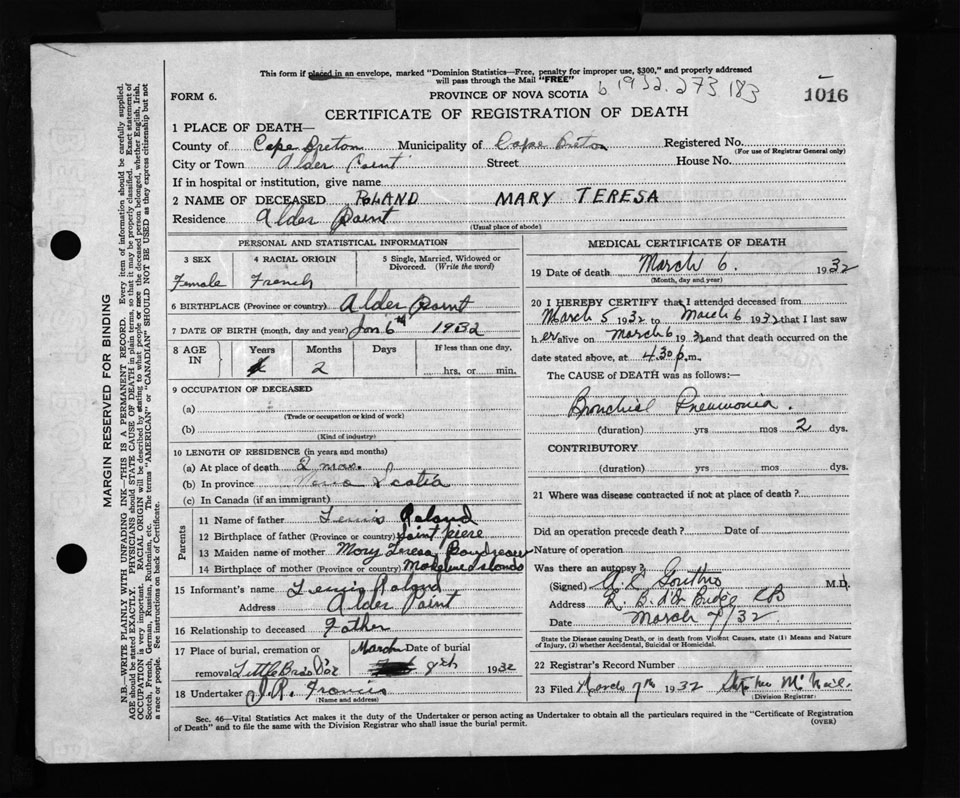 This form if placed in an envelope, marked "Dominion Statistics—Free, penalty for improper use, $300," and properly addressed
will pass through the Mail "FREE"
FORM 6.
PROVINCE OF NOVA SCOTIA
b 1932.273183
1016
CERTIFICATE OF REGISTRATION OF DEATH
1 PLACE OF DEATH—
County of Cape Breton Municipality of Cape Breton Registered No.
(For use of Registrar General only)
City or Town Alder Point Street House No.
If in hospital or institution, give name
2 NAME OF DECEASED ROLAND MARY TERESA
Residence Alder Point
(Usual place of abode)
PERSONAL AND STATISTICAL INFORMATION
3 SEX 4 RACIAL ORIGIN 5 Single, Married, Widowed or Divorced. (Write the word)
Female French
6 BIRTHPLACE (Province or country) Alder Point
7 DATE OF BIRTH (month, day and year) Jan 6th 1932
8 AGE IN Years Months Days If less than one day,
2 hrs. or min.
9 OCCUPATION OF DECEASED
(a)
(Trade or occupation or kind of work)
(b)
(Kind of industry)
10 LENGTH OF RESIDENCE (in years and months)
(a) At place of death 2 mos.
(b) In province Nova Scotia
(c) In Canada (if an immigrant)
Parents
11 Name of father Lewis Roland
12 Birthplace of father (Province or country) Saint Piere
13 Maiden name of mother Mary Teresa Boudreau
14 Birthplace of mother (Province or country) Magdeline Islands
15 Informant's name Lewis Roland
Address Alder Point
16 Relationship to deceased Father
17 Place of burial, cremation or removal Little Bras D'or
Date of burial March 8th 1932
18 Undertaker J.R. Francis
(Name and address)
MEDICAL CERTIFICATE OF DEATH
19 Date of death March 6. 1932
(Month, day and year)
20 I HEREBY CERTIFY that I attended deceased from
March 5 1932 to March 6 1932 that I last saw
her alive on March 6 1932 and that death occurred on the
date stated above, at 4.30 p.m.
The CAUSE of DEATH was as follows:
Bronchial Pneumonia.
(duration) yrs mos 2 dys.
CONTRIBUTORY
(duration) yrs. mos. dys.
21 Where was disease contracted if not at place of death?
Did an operation precede death? Date of
Nature of operation
Was there an autopsy?
(Signed) M.D.
Address CB
Date March 7/32
State the Disease causing Death, or in death from Violent Causes, state (1) Means and Nature
of Injury, (2) whether Accidental, Suicidal or Homicidal.
22 Registrar's Record Number
23 Filed March 7th 1932 McNeil
(Division Registrar)
Sec. 46—Vital Statistics Act makes it the duty of the Undertaker or person acting as Undertaker to obtain all the particulars required in the "Certificate of Registration
of Death" and to file the same with the Division Registrar who shall issue the burial permit.
(OVER)
MARGIN RESERVED FOR BINDING
N.B.—WRITE PLAINLY WITH UNFADING INK—THIS IS A PERMANENT RECORD. Every item of information should be carefully supplied.
AGE should be stated EXACTLY. PHYSICIANS should STATE CAUSE OF DEATH in plain terms, so that it may be properly classified. Exact statement of
OCCUPATION is very important. RACIAL ORIGIN will be described by stating to what people or race the deceased person belonged, whether English, Irish,
Scotch, French, German, Russian, Ruthenian, etc. The terms "AMERICAN" or "CANADIAN" SHOULD NOT BE USED as they express citizenship but not
a race or people. See instructions on back of Certificate.